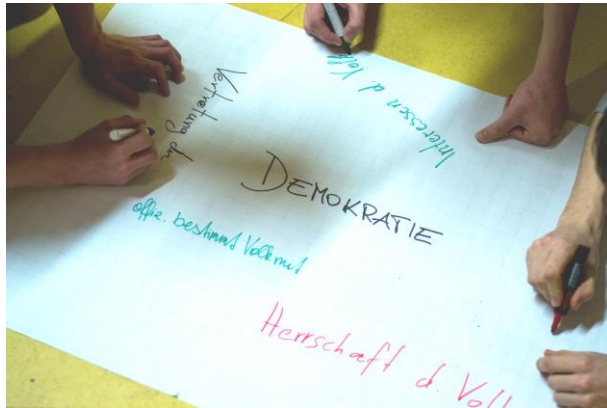 Vertretung der
Interessen d. Volk
DEMOKRATIE
offiz. bestimmt Volk mit
Herrschaft d. Volk